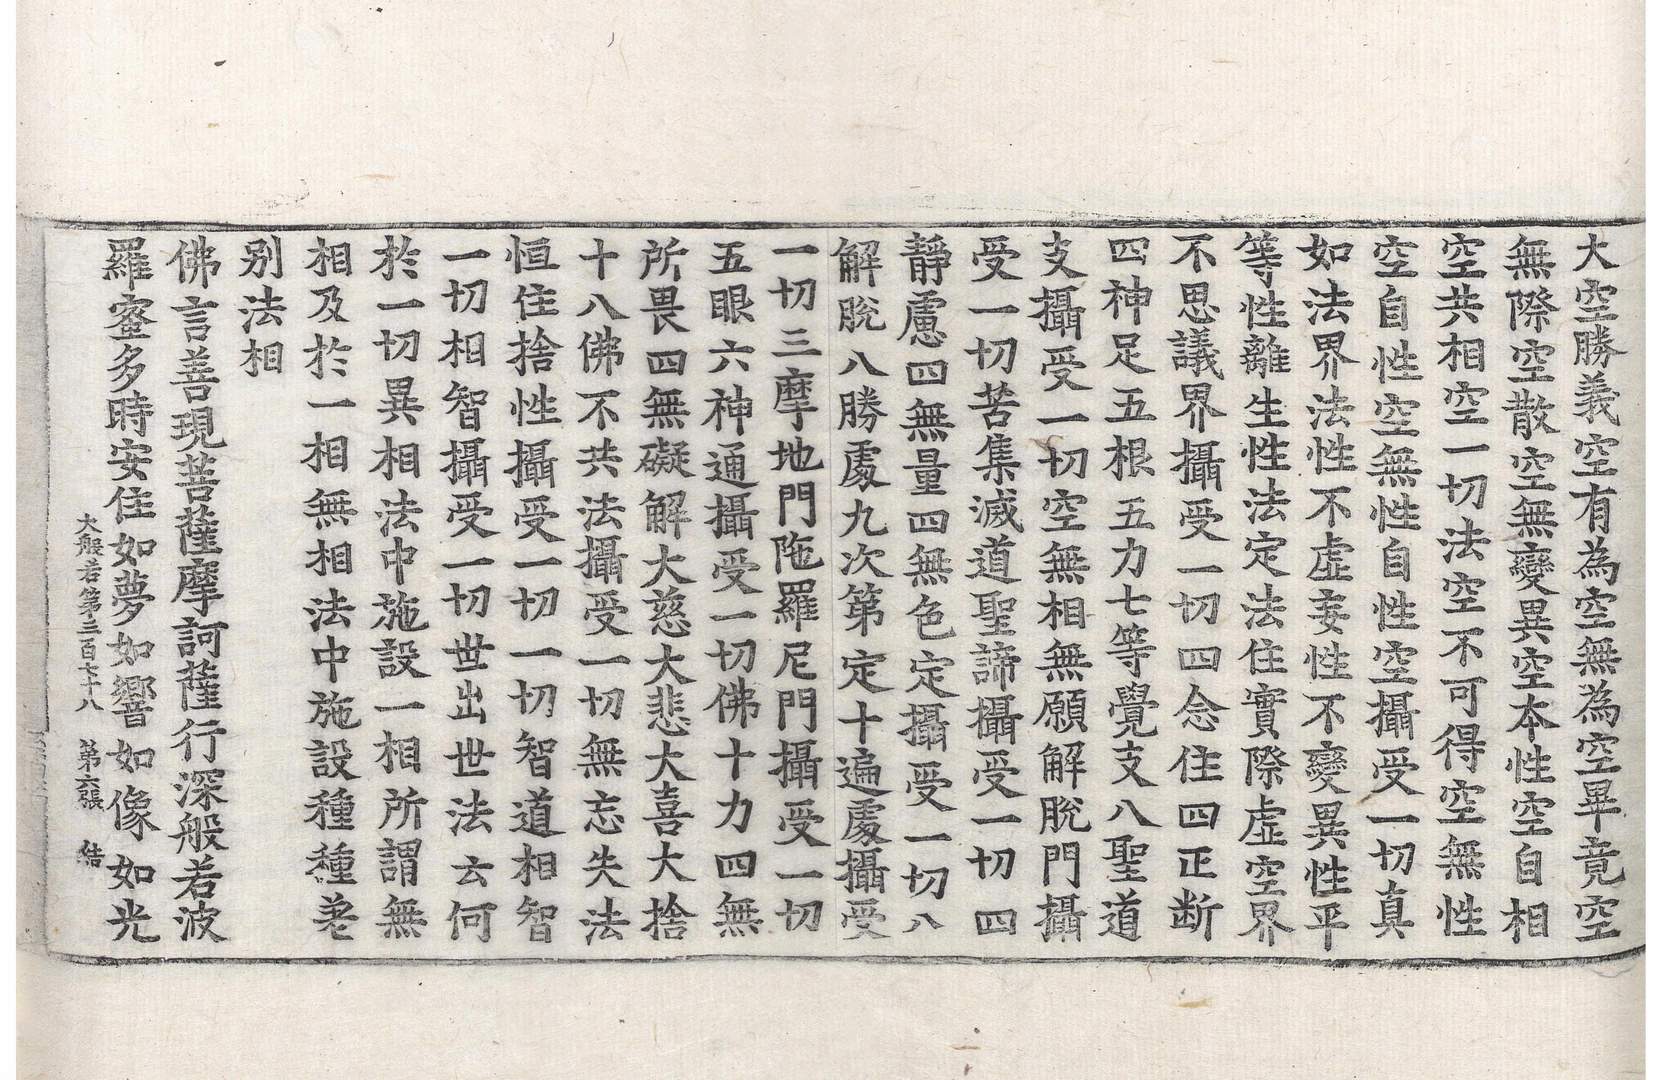 大空勝義空有為空無為空畢竟空
無際空散空無變異空本性空自相
空共相空一切法空不可得空無性
空自性空無性自性空攝受一切真
如法界法性不虛妄性不變異性平
等性離生性法定法住實際虛空界
不思議界攝受一切四念住四正断
四神足五根五力七等覺支八聖道
支攝受一切空無相無願解脫門攝
受一切苦集滅道聖諦攝受一切四
靜慮四無量四無色定攝受一切八
解脫八勝處九次第定十遍處攝受
一切三摩地門陁羅尼門攝受一切
五眼六神通攝受一切佛十力四無
所畏四無礙解大慈大悲大喜大捨
十八佛不共法攝受一切無忘失法
恒住捨性攝受一切一切智道相智
一切相智攝受一切世出世法云何
於一切異相法中施設一相所謂無
相及於一相無相法中施設種種差
別法相
佛言善現菩薩摩訶薩行深般若波
羅蜜多時安住如夢如響如像如光
大般若第三百七十八 第六張 結